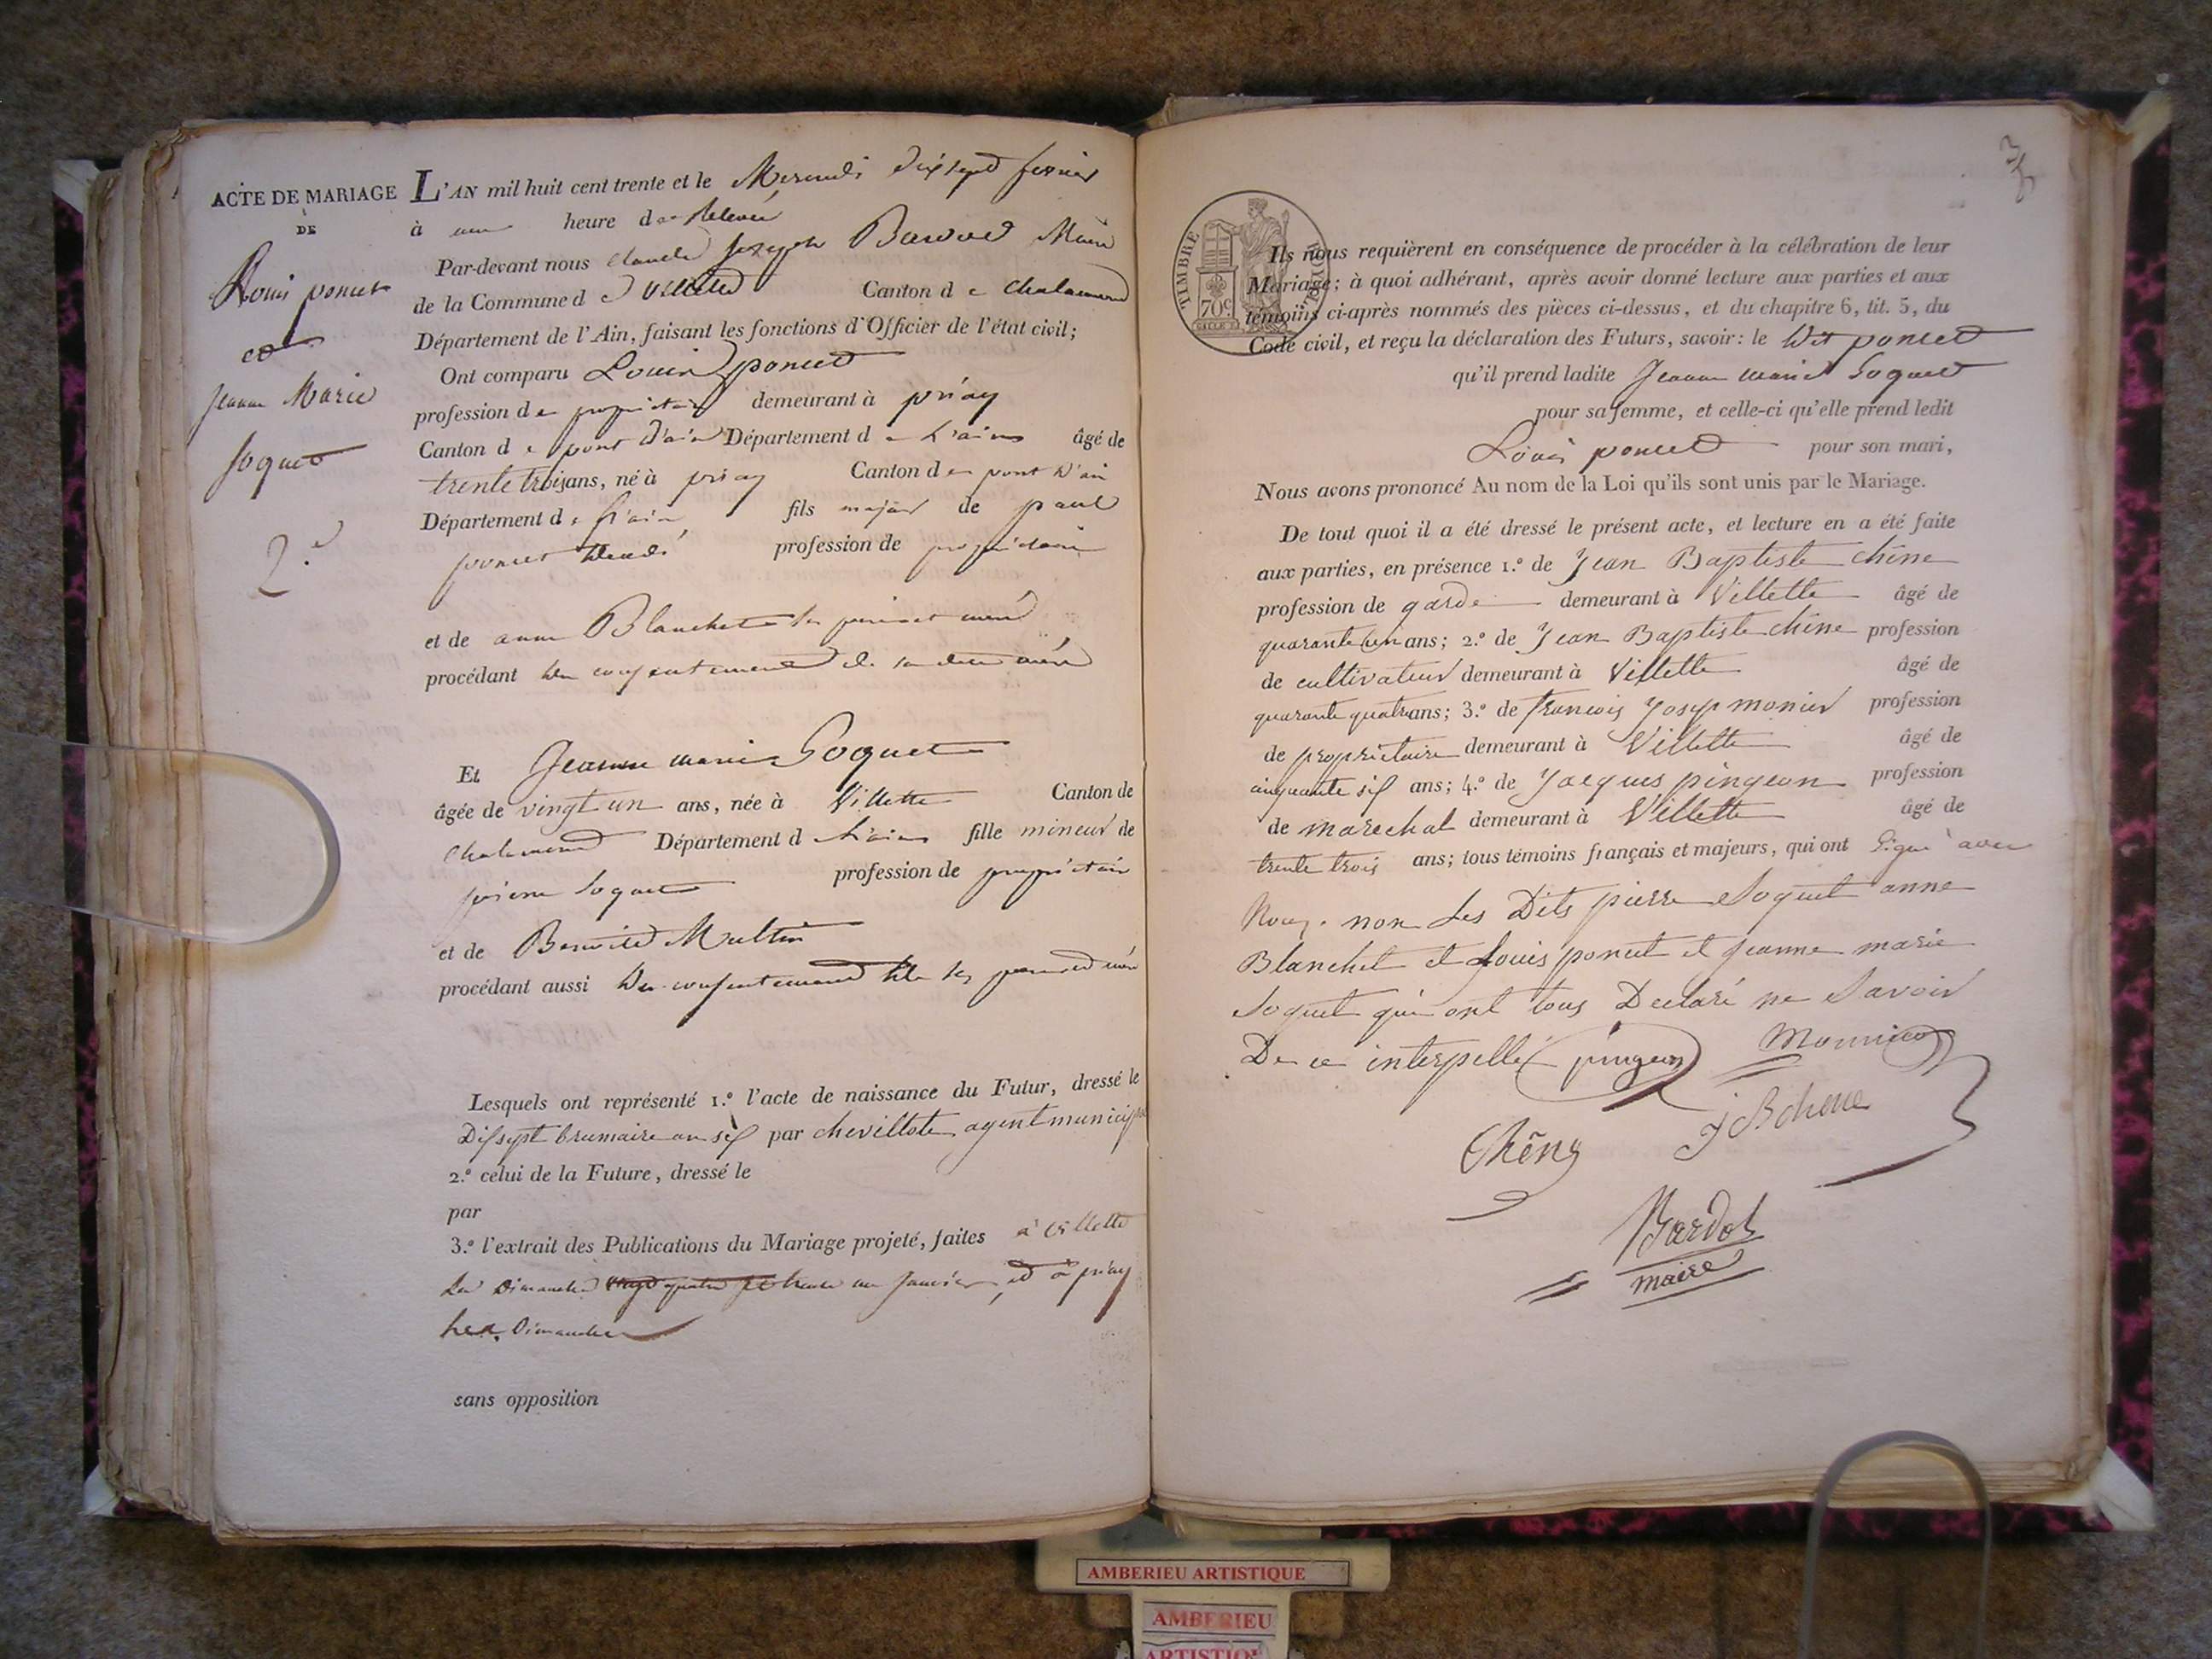 ACTE DE MARIAGE
DE
Louis poncet
et
Jeanne Marie
Soquet
2.e
L'AN mil huit cent trente et le Mercredi dix sept fevrier
à une heure de Relevée
Par-devant nous Claude Joseph Bardod Maire
de la Commune de Villette Canton de chalamond
Département de l'Ain, faisant les fonctions d'Officier de l'état civil;
Ont comparu Louis poncet
profession de propriétaire demeurant à priay
Canton de pont d'ain Département de L'ain âgé de
trente trois ans, né à priay Canton de pont d'ain
Département de L'ain fils majeur de paul
poncet profession de propriétaire
et de anne Blanchet ses père et mère
procédant du consentement de sa dite mère
Et Jeanne marie Soquet
âgée de vingt un ans, née à Villette Canton de
Chalamond Département de L'ain fille mineur de
pierre Soquet profession de propriétaire
et de Benoite Multin
procédant aussi du consentement de ses père et mère
Lesquels ont représenté 1.º l'acte de naissance du Futur, dressé le
Dix sept brumaire an six par chevillote agent municipal
2.º celui de la Future, dressé le
par
3.º l'extrait des Publications du Mariage projeté, faites à Villette
Les Dimanches vingt quatre et trente un Janvier, et à priay
les Dimanches
sans opposition
3
TIMBRE ROYAL
70c
Ils nous requièrent en conséquence de procéder à la célébration de leur
Mariage; à quoi adhérant, après avoir donné lecture aux parties et aux
témoins ci-après nommés des pièces ci-dessus, et du chapitre 6, tit. 5, du
Code civil, et reçu la déclaration des Futurs, savoir: le dit poncet
qu'il prend ladite Jeanne marie Soquet
pour sa femme, et celle-ci qu'elle prend ledit
Louis poncet pour son mari,
Nous avons prononcé Au nom de la Loi qu'ils sont unis par le Mariage.
De tout quoi il a été dressé le présent acte, et lecture en a été faite
aux parties, en présence 1.º de Jean Baptiste chêne
profession de garde demeurant à Villette âgé de
quarante un ans; 2.º de Jean Baptiste chêne profession
de cultivateur demeurant à Villette âgé de
quarante quatre ans; 3.º de francois Josep monier profession
de propriétaire demeurant à Villette âgé de
cinquante six ans; 4.º de Jacques pingeon profession
de marechal demeurant à Villette âgé de
trente trois ans; tous témoins français et majeurs, qui ont Signé avec
Nous. non Les Dits pierre Soquet anne
Blanchet et Louis poncet et Jeanne marie
Soquet qui ont tous Declaré ne Savoir
De ce interpellé pingeon Monnier
Chêne JB chene
Bardot
maire
AMBERIEU ARTISTIQUE
AMBERIEU
ARTISTIQUE